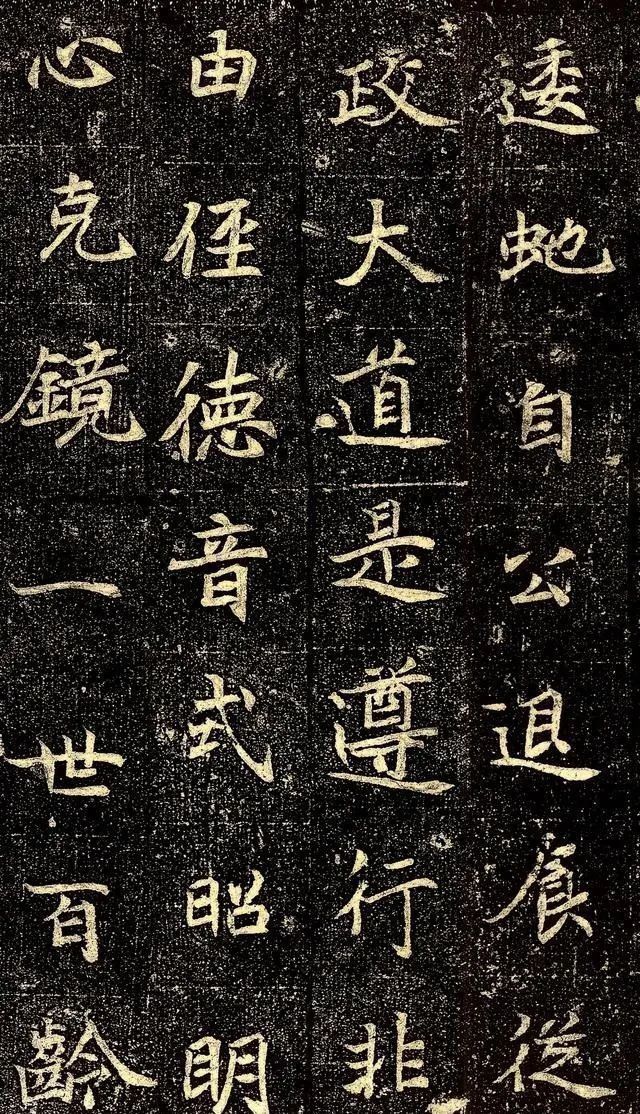 逶虵自公退食從
政大道是遵行非
由徑德音式昭明
心克鏡一世百齡